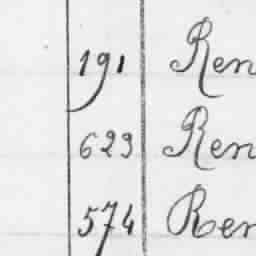 191 Ren
629 Ren
574 Ren